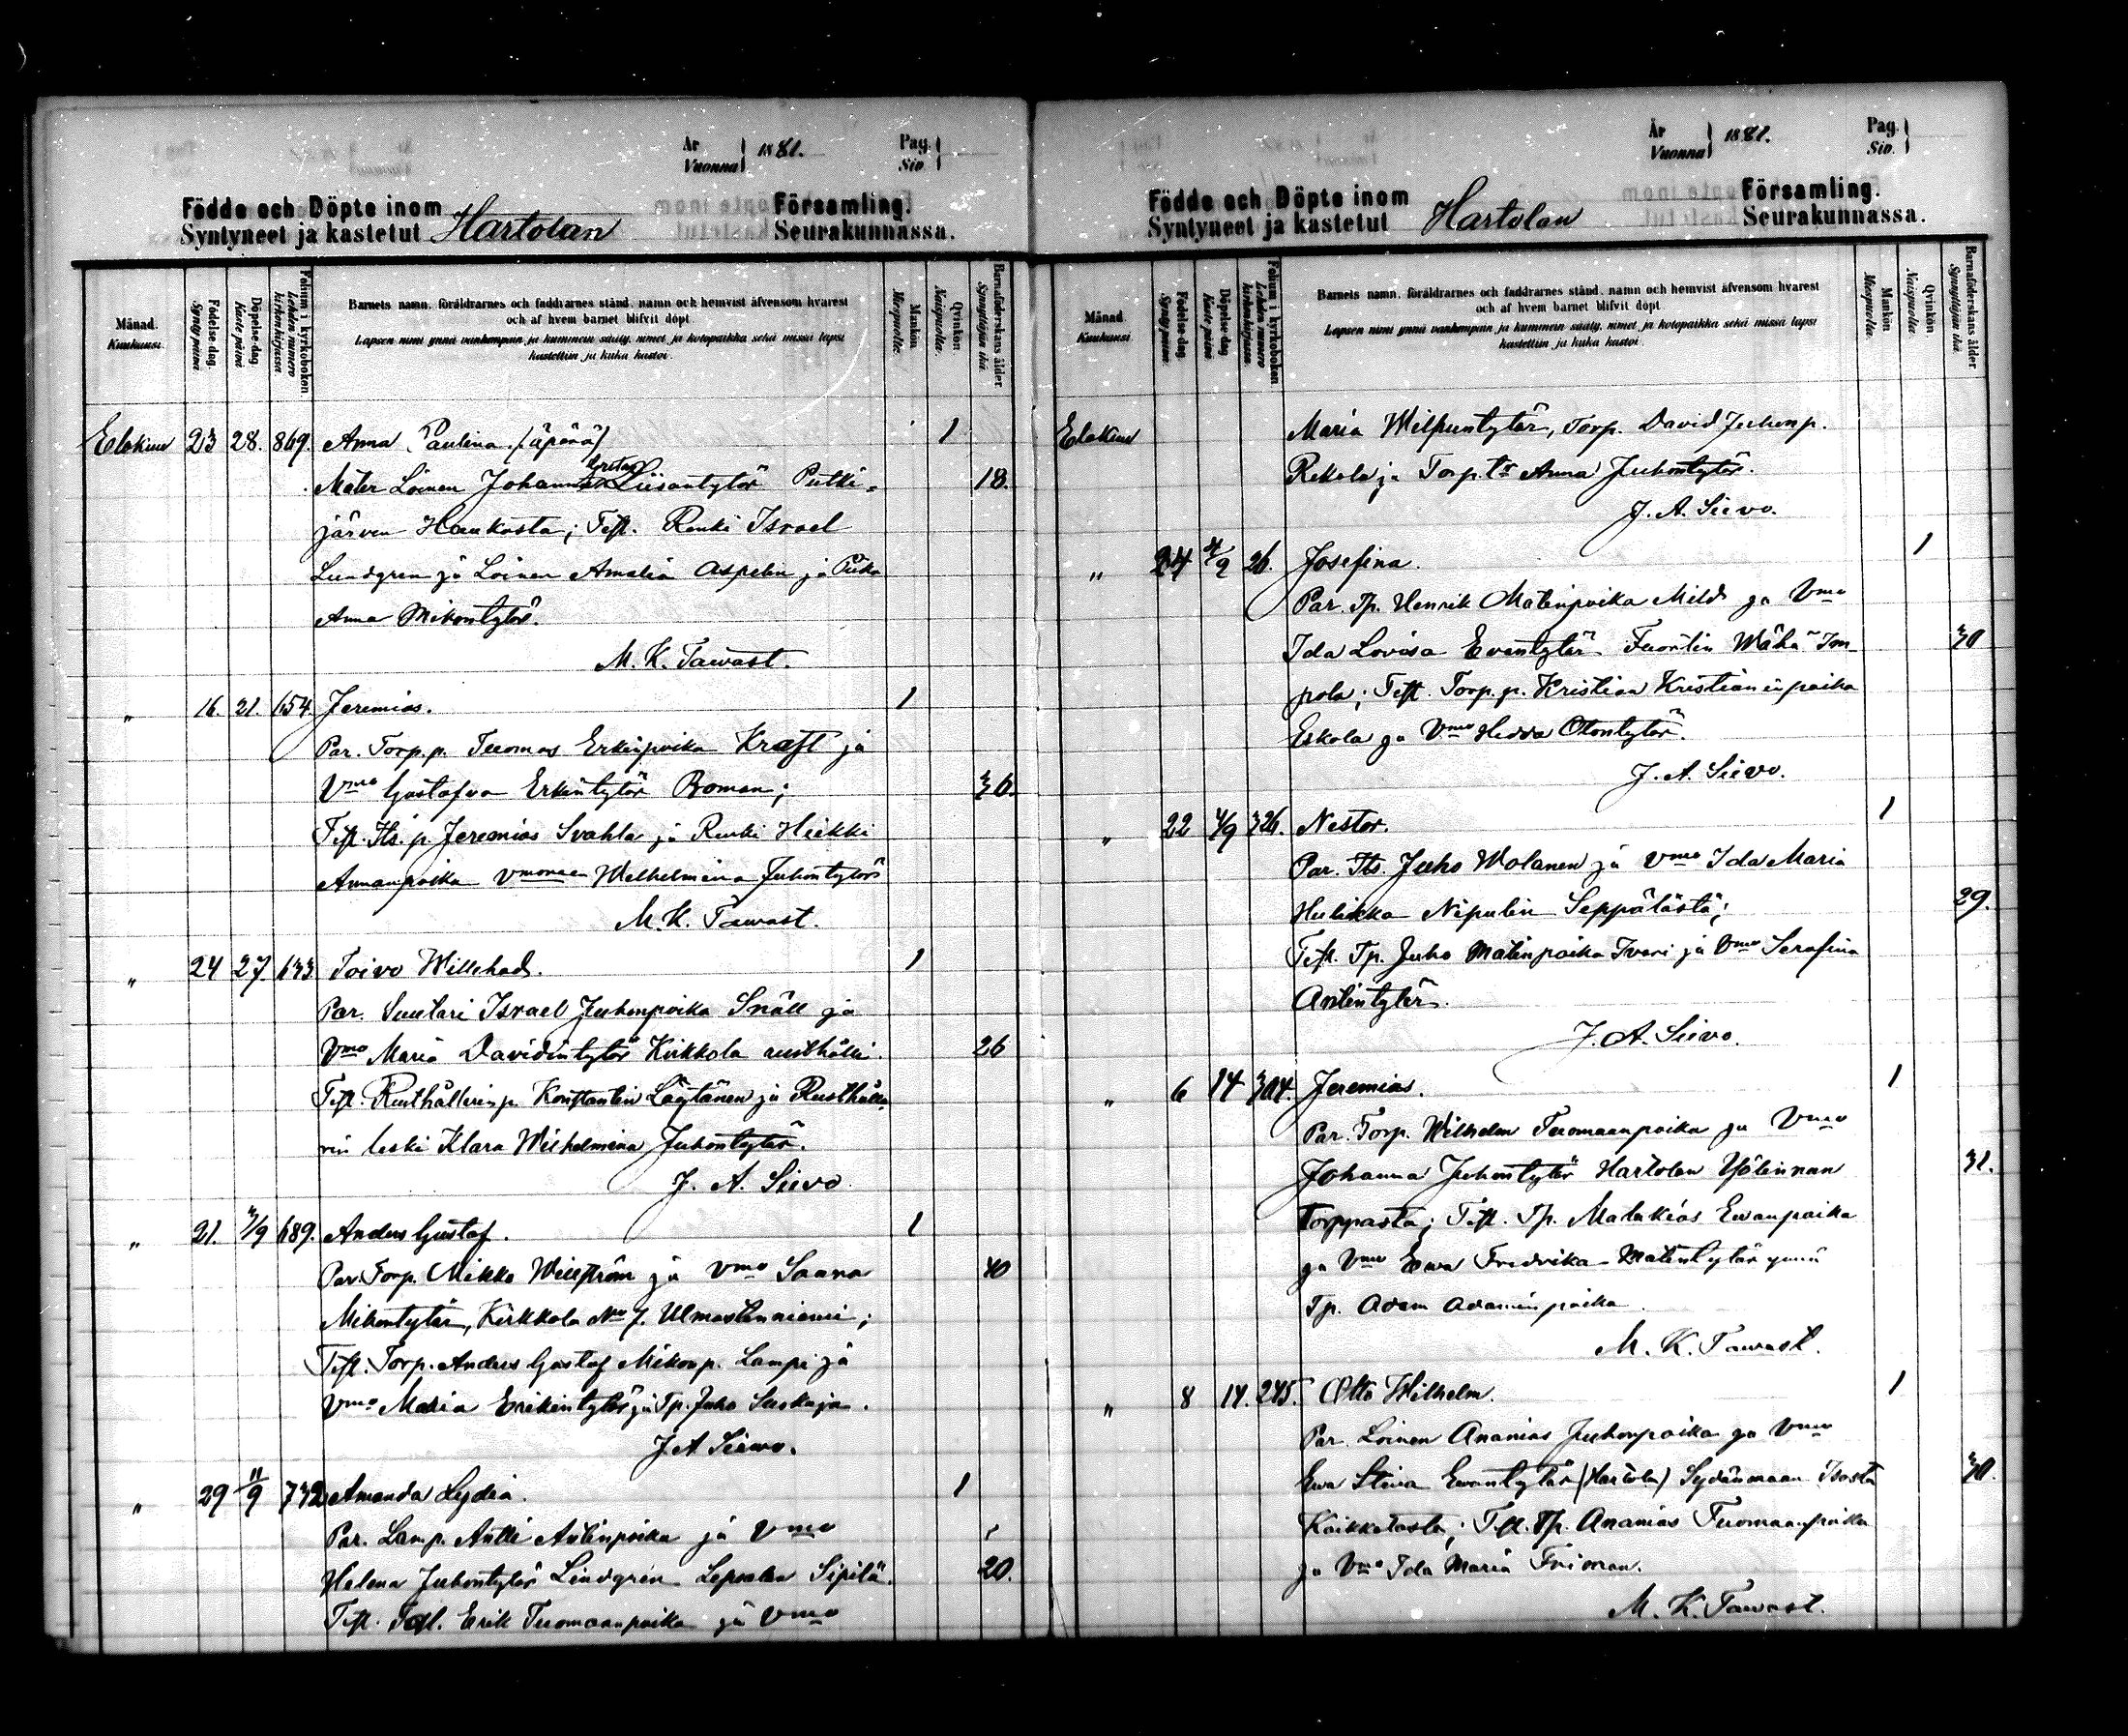 År
Vuonna } 1881.
Pag.
Siv. }
Födde och Döpte inom
Syntyneet ja kastetut Hartolan
Församling.
Seurakunnassa.
Månad.
Kuukausi.
Födelse-dag.
Syntypäivä
Döpelse-dag
Kaste päivä
Folium i kyrkoboken.
Lehden numero kirkonkirjassa
Barnets namn, föräldrarnes och faddrarnes stånd, namn och hemvist äfvensom hvarest
och af hvem barnet blifvit döpt
Lapsen nimi ynnä vanhempain ja kummein sääty, nimet ja kotopaikka sekä missä lapsi
kastettiin ja kuka kastoi.
Mankön
Miespuolta.
Qvinkön
Naispuolta.
Barnaföderskans ålder
Synnyttäjän ikä.
Elokuu 23 28. 869. Anna Paulina (äpärä) 1
Mater Loinen Johanna Liisantytär Putki- 18.
järven Haukasta; Test. Renki Israel
Lundgren ja Loinen Amalia Aspelin ja Piika
Anna Mikontytär.
M. K. Tawast.
" 16. 21. 654. Jeremias. 1
Par. Torp.p. Tuomas Erkinpoika Kraft ja
Vmo Gustafva Erkintytär Roman; 36.
Test. Its. p. Jeremias Svahla ja Renki Heikki
Annanpoika vmoneen Wilhelmina Juhontytär
M. K. Tawast.
" 24 27. 633 Toivo Willehad. 1
Par. Suutari Israel Juhonpoika Snäll ja
Vmo Maria Davidintytär Kirkkola rusthålli. 26
Test. Rusthållerin p. Konstantin Löytänen ja Rusthålle-
rin leski Klara Wilhelmina Juhontytär.
J. A. Sievo
" 21. 4/9 689. Anders Gustaf. 1
Par. Torp. Mikko Willström ja Vmo Saara 40
Mikontytär, Kirkkola No 7. Ulmastenniemi;
Test. Torp. Anders Gustaf Mikonp. Lampi ja
Vmo Maria Erikintytär ja Tp. Juho Suskaja.
J. A. Sievo.
" 29 11/9 732 Amanda Lydia. 1
Par. Lamp. Antti Antinpoika ja Vmo
Helena Juhontytär Lindgren Sipilä. 20.
Test. Erik Tuomaanpoika ja Vmo
År
Vuonna } 1881.
Pag.
Siv. }
Födde och Döpte inom
Syntyneet ja kastetut Hartolan
Församling.
Seurakunnassa.
Månad
Kuukausi
Födelse-dag
Syntypäivä.
Döpelse-dag
Kaste päivä
Folium i kyrkoboken
Lehden numero kirkonkirjassa
Barnets namn, föräldrarnes och faddrarnes stånd, namn och hemvist äfvensom hvarest
och af hvem barnet blifvit döpt
Lapsen nimi ynnä vanhempain ja kummein sääty, nimet ja kotopaikka sekä missä lapsi
kastettiin ja kuka kastoi
Mankön
Miespuolta.
Qvinkön.
Naispuolta.
Barnaföderskans ålder
Synnyttäjän ikä.
Elokuu Maria Wilpuntytär, Torp. David Juhonp.
Rekola ja Torp.tr Anna Juhontytär.
J. A. Sievo.
" 24 4/9 26. Josefina. 1
Par. Tp. Henrik Matinpoika Mild ja Vmo
Ida Lovisa Evantytär Fuortin Wähä Jom- 30
pola; Test. Torp.p. Kristian Kristianinpoika
Eskola ja Vmo Hedda Otontytär.
J. A. Sievo.
" 22 4/9 326. Nestor. 1
Par. Its. Juho Wolanen ja Vmo Ida Maria
Hulikka Nipulin Seppälästä; 29.
Test. Tp. Juho Matinpoika Ivari ja Vmo Serafina
Antintytär.
J. A. Sievo.
" 6 14 304. Jeremias. 1
Par. Torp. Wilhelm Tuomaanpoika ja Vmo
Johanna Juhontytär Hartolan Ylilinnan 31.
Torppasta; Test. Tp. Malakias Ewanpoika
ja Vmo Ewa Fredrika Matintytär ynnä
Tp. Adam Adaminpoika
M. K. Tawast.
" 8 14. 245. Otto Wilhelm. 1
Par. Loinen Ananias Juhonpoika ja Vmo
Ewa Stiva Ewantytär (Hartola) Sydänmaan Isosta 30.
Koikkolasta; Test. Tp. Ananias Tuomaanpoika
ja Vmo Ida Maria Friman.
M. K. Tawast.